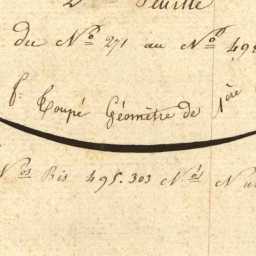 2me Feuille
du No 271 au No 495
Géomètre de 1ère
Nos Bis 495.303